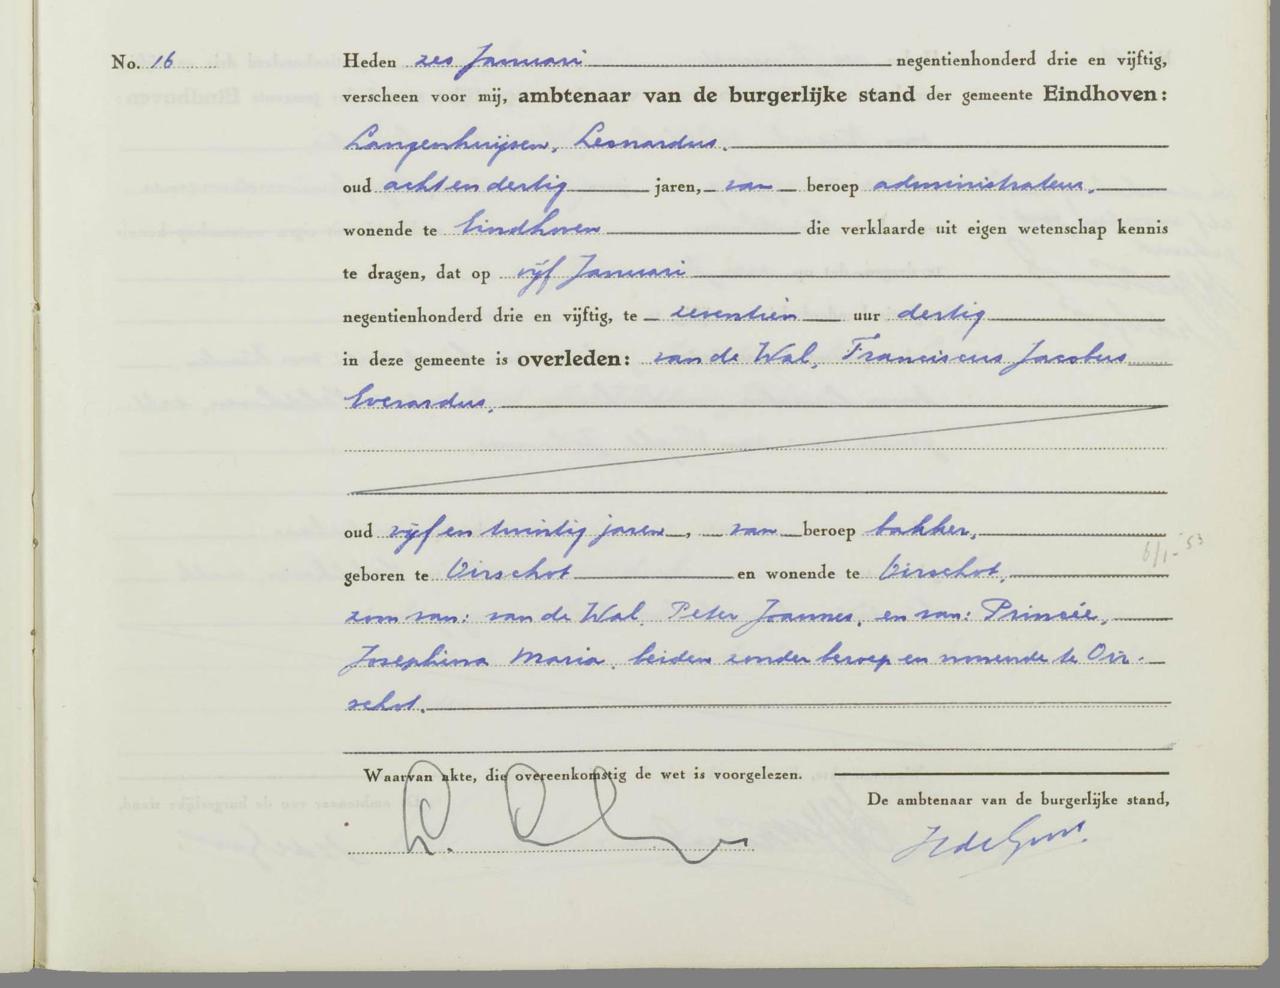 No. 16 Heden zes Januari negentienhonderd drie en vijftig,
verscheen voor mij, ambtenaar van de burgerlijke stand der gemeente Eindhoven:
Langenhuijsen, Leonardus.
oud acht en dertig jaren, van beroep administrateur,
wonende te Eindhoven die verklaarde uit eigen wetenschap kennis
te dragen, dat op vijf Januari
negentienhonderd drie en vijftig, te zeventien uur dertig
in deze gemeente is overleden: van de Wal, Franciscus Jacobus
Everardus.
oud vijf en twintig jaren, van beroep bakker,
geboren te Oirschot en wonende te Oirschot,
zoon van: van de Wal, Peter Joannes, en van: Princée,
Josephina Maria, beiden zonder beroep en wonende te Oir-
schot.
6/1-'53
Waarvan akte, die overeenkomstig de wet is voorgelezen.
De ambtenaar van de burgerlijke stand,